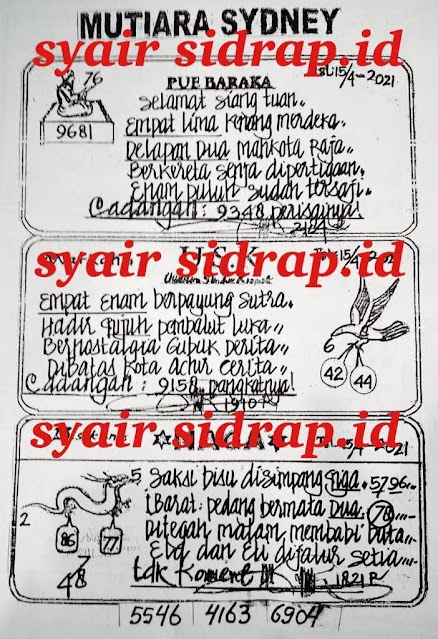 MUTIARA SYDNEY
syair sidrap.id
76
9681
PUE BARAKA
15/4-2021
Selamat siang tuan..
Empat lima kenang merdeka.
Delapan Dua mahkota Raja
Berkereta senja dipertigaan..
Enam puluh sudah tersaji.
Cadangan: 9348 perisainya!
syair sidrap.id
U.S.K
Empat Enam berpayung sutra.
Hadir Tujuh pembalut luka..
Bernostalgia Gubuk derita..
Dibatas kota achir cerita..
Cadangan: 9158 pangkatnya!
1940 R
6
42 44
syair sidrap.id
5/4-2021
5
2
86 77
7
48
Saksi bisu disimpang Tiga. 5796....
Ibarat: pedang bermata Dua. 78....
Ditegah malam, membabi buta
Eba dan Eti dijalur setia
tdk koment !!!
1821 R
5546 4163 6904